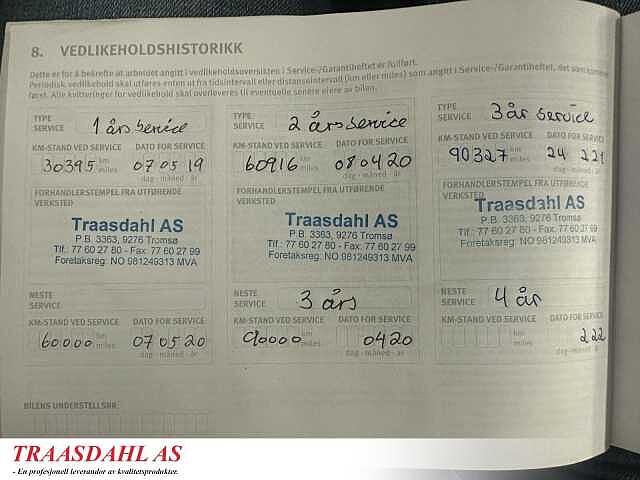 8. VEDLIKEHOLDSHISTORIKK
Dette er for å bekrefte at arbeidet angitt i vedlikeholdsoversikten i Service-/Garantiheftet er fullført.
Periodisk vedlikehold skal utføres enten ut fra tidsintervall eller distanseintervall (km eller miles) som angitt i Service-/Garantiheftet, det som kommer
først. Alle kvitteringer for vedlikehold skal overleveres til eventuelle senere eiere av bilen.
TYPE SERVICE 1 års service
KM-STAND VED SERVICE DATO FOR SERVICE
30395 km miles 07 05 19
dag - måned - år
FORHANDLERSTEMPEL FRA UTFØRENDE VERKSTED
Traasdahl AS
P.B. 3363, 9276 Tromsø
Tlf.: 77 60 27 80 - Fax: 77 60 27 99
Foretaksreg: NO 981249313 MVA
NESTE SERVICE
KM-STAND VED SERVICE DATO FOR SERVICE
60000 km miles 07 05 20
dag - måned - år
BILENS UNDERSTELLSNR.
TYPE SERVICE 2 års service
KM-STAND VED SERVICE DATO FOR SERVICE
60916 km miles 08 04 20
dag - måned - år
FORHANDLERSTEMPEL FRA UTFØRENDE VERKSTED
Traasdahl AS
P.B. 3363, 9276 Tromsø
Tlf.: 77 60 27 80 - Fax: 77 60 27 99
Foretaksreg: NO 981249313 MVA
NESTE SERVICE 3 års
KM-STAND VED SERVICE DATO FOR SERVICE
90000 km miles 04 20
dag - måned - år
TYPE SERVICE 3 år service
KM-STAND VED SERVICE DATO FOR SERVICE
90327 km miles 24 2 21
dag - måned - år
FORHANDLERSTEMPEL FRA UTFØRENDE VERKSTED
Traasdahl AS
P.B. 3363, 9276 Tromsø
Tlf.: 77 60 27 80 - Fax: 77 60 27 99
Foretaksreg: NO 981249313 MVA
NESTE SERVICE 4 år
KM-STAND VED SERVICE DATO FOR SERVICE
km miles 2 22
dag - måned - år
TRAASDAHL AS
- En profesjonell leverandør av kvalitetsprodukter.